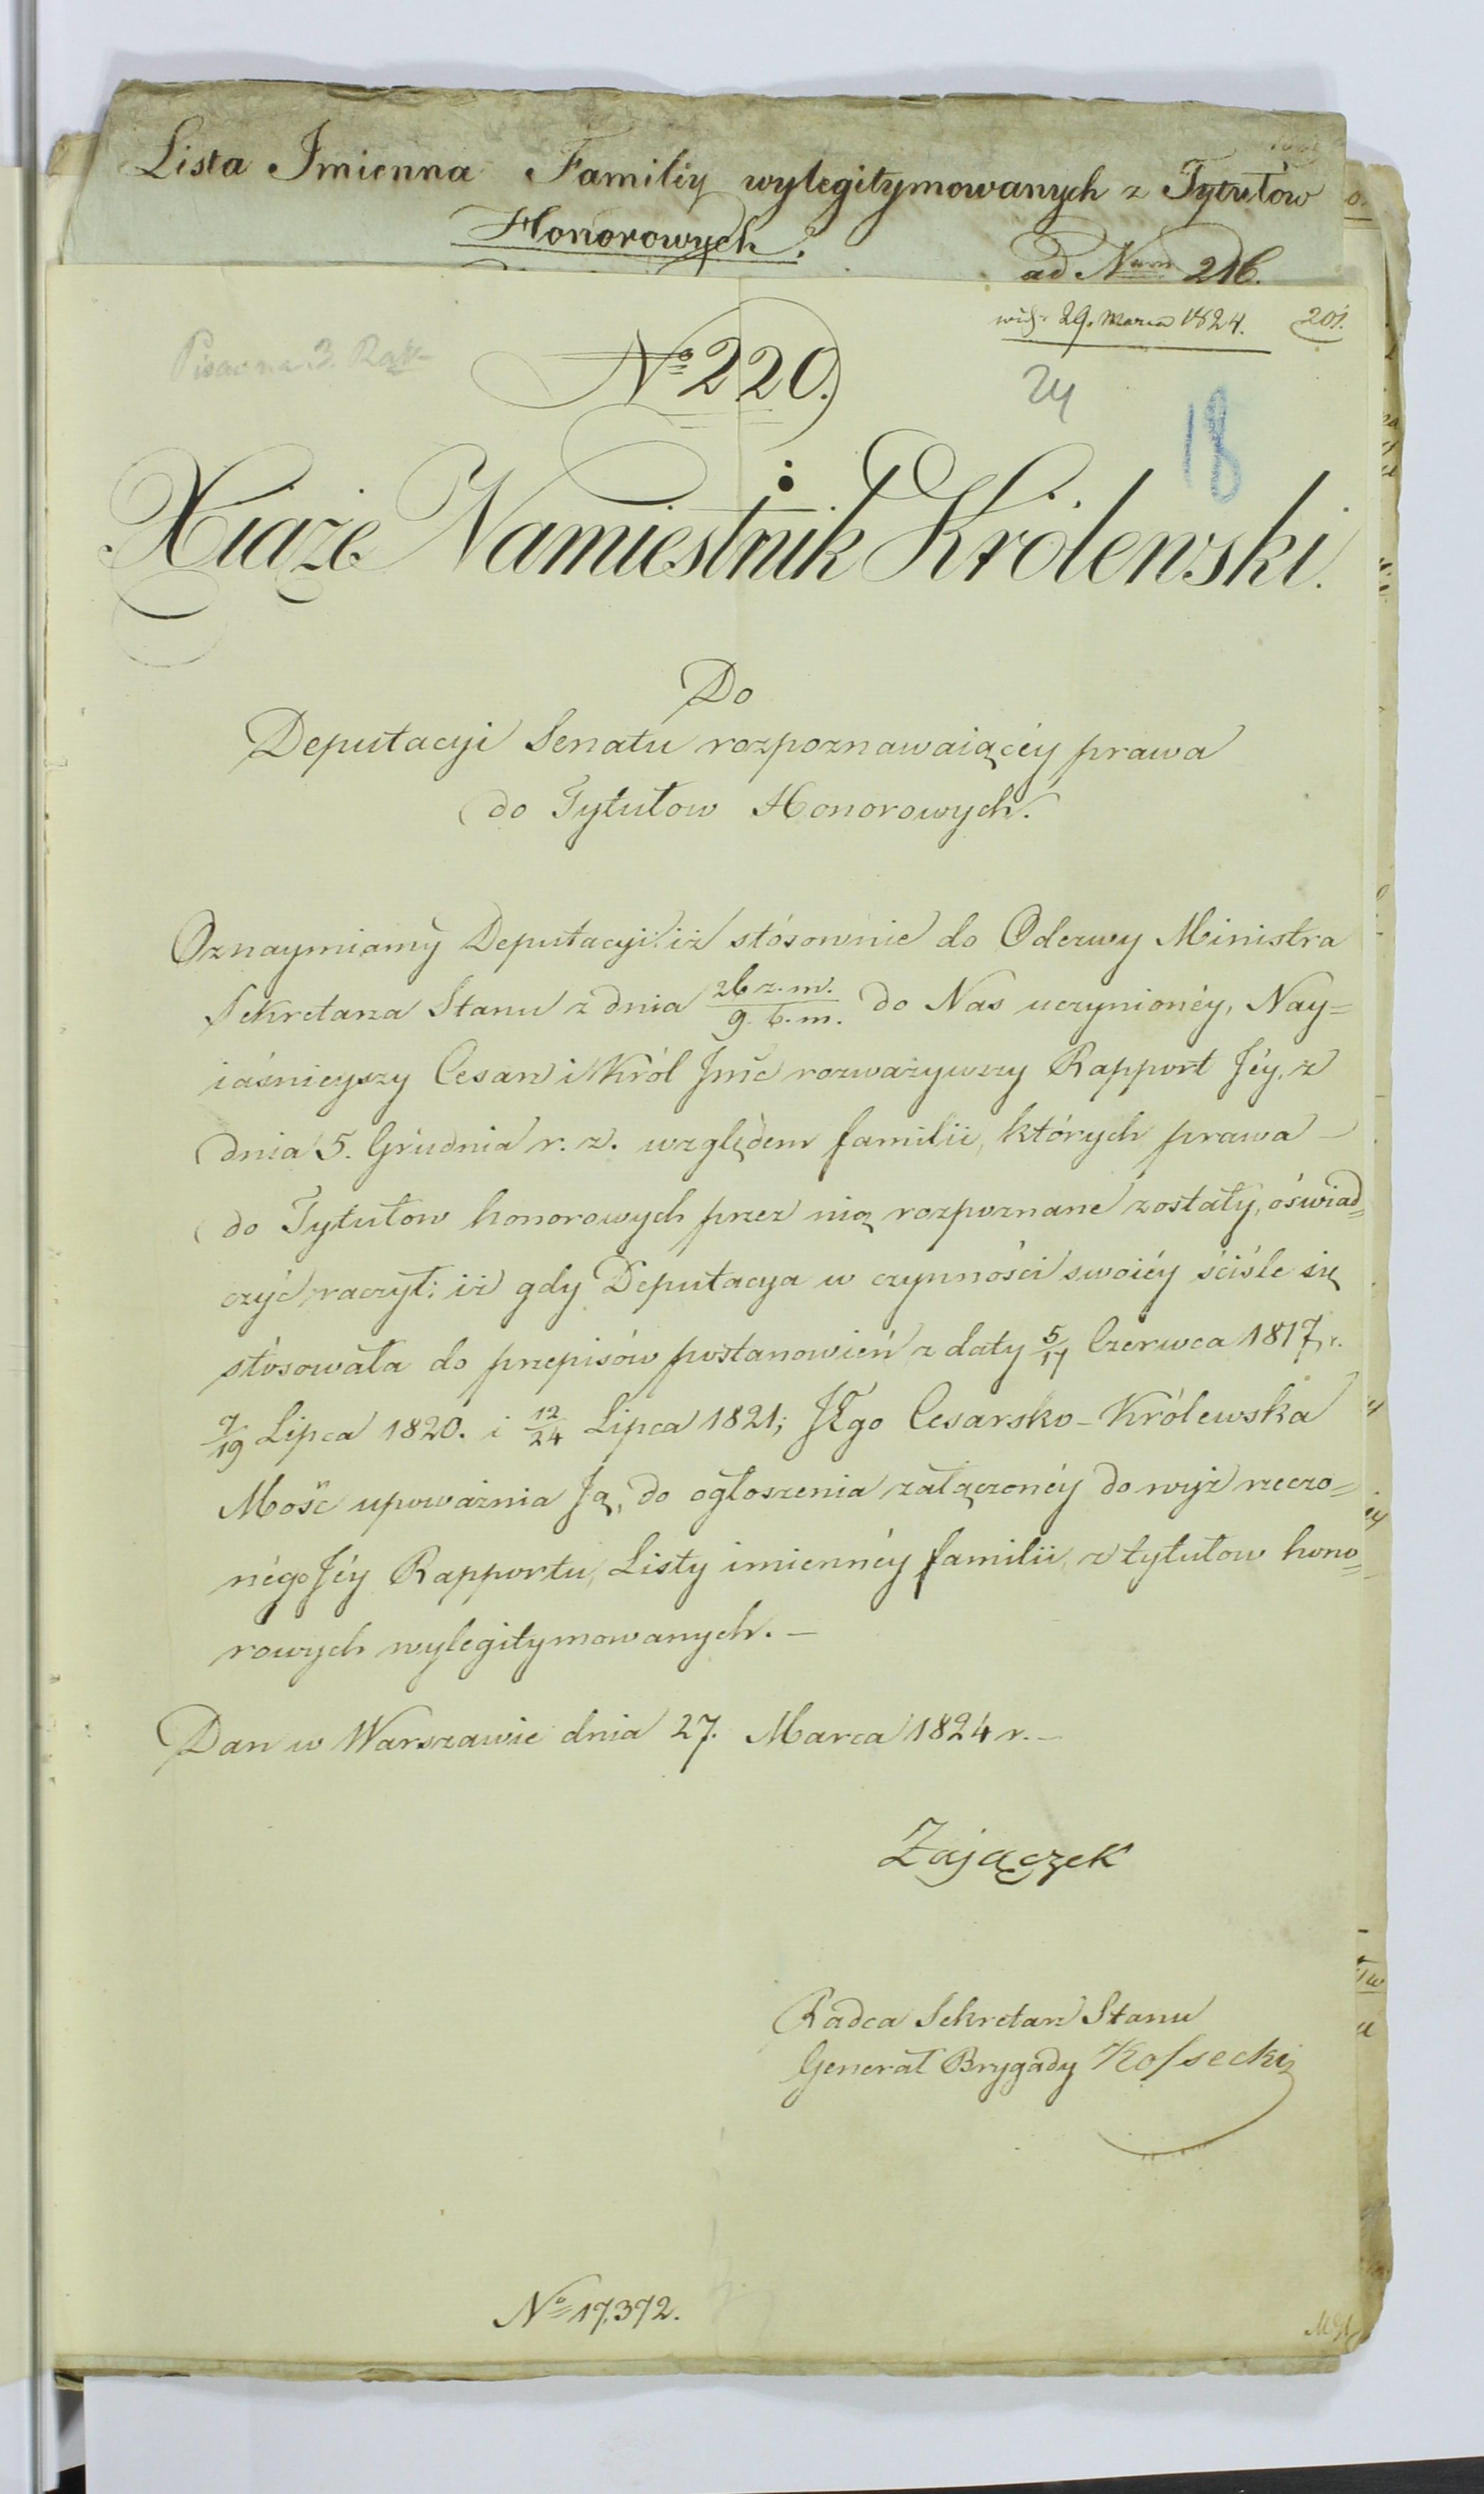 Lista Imienna Familiy wylegitymowanych z Tytułów
Honorowych.
ad Num 216.
29. Marca 1824. 201.
No 220.
24
18
Xiąże Namiestnik Królewski.
Do
Deputacyi Senatu rozpoznawaiącéy prawa
do Tytułow Honorowych.
Oznaymiamy Deputacyi: iż stósownie do Odezwy Ministra
Sekretarza Stanu z dnia 26 z. m./9. b. m. do Nas uczynionéy, Nay=
iaśnieyszy Cesarz i Król Jmć rozważywszy Rapport Jéy, z
dnia 5. Grudnia r. z. względem familii, których prawa –
do Tytułow honorowych przez nią rozpoznane zostały, oświad=
czyć raczył: iż gdy Deputacya w czynności swoiéy ściśle się
stósowała do przepisów postanowień z daty 5/17 Czerwca 1817 r.
7/19 Lipca 1820. i 12/24 Lipca 1821; JEgo Cesarsko-Królewska
Mość upoważnia Ją, do ogłoszenia załączonéy do wyż rzeczo=
négo Jéy Rapportu, Listy imiennéy familii, z tytułow hono=
rowych wylegitymowanych. –
Dan w Warszawie dnia 27. Marca 1824 r. –
Zajączek
Radca Sekretarz Stanu
Generał Brygady Kossecki
No 17,372.